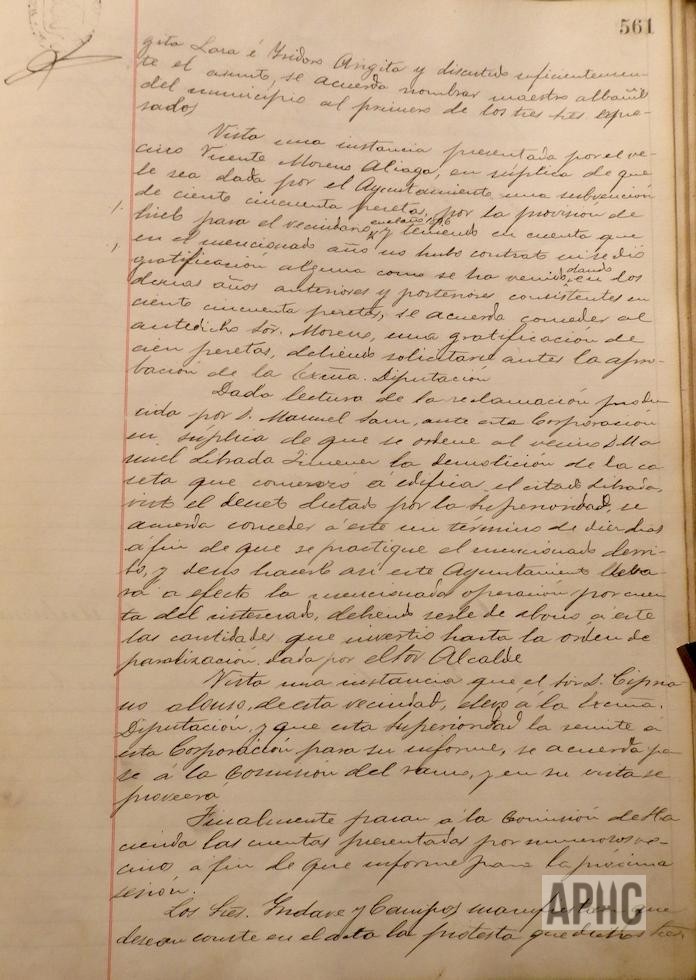 561
gita Lara é Ysidoro Angita y discutido suficientemen-
te el asunto, se acuerda nombrar maestro albañil
del municipio al primero de los tres Sres. expre-
sados
Vista una instancia presentada por el ve-
cino Vicente Moreno Aliaga, en súplica de que
le sea dada por el Ayuntamiento una subvención
de ciento cincuenta pesetas, por la provision de
hielo para el vecindario, en el año y teniendo en cuenta que
en el mencionado año no hubo contrato ni se dió
gratificación alguna como se ha venido dando en los
demas años anteriores y posteriores, consistentes en
ciento cincuenta pesetas; se acuerda conceder al
antedicho Sor. Moreno, una gratificacion de
cien pesetas, debiendo solicitarse antes la apro-
bación de la Excma. Diputación
Dada lectura de la reclamación produ-
cida por D. Manuel ante esta Corporación
en súplica de que se ordene al vecino D. Ma
nuel Librada Jimenez la demolición de la ca
seta que comenzó á edificar el citado Librada,
visto el decreto dictado por la Superioridad, se
acuerda conceder á este un término de diez dias
á fin de que se practique el mencionado derri-
bo, y de no hacerlo asi este Ayuntamiento lleva-
rá a efecto la mencionada operación por cuen
ta del interesado, debiendo serle de abono á este
las cantidades que invirtió hasta la orden de
paralización dada por el Sor Alcalde
Vista una instancia que el Sor D. Cipria
no Alonso, de esta vecindad, elevó á la Excma.
Diputación, y que esta Superioridad la remite á
esta Corporación para su informe, se acuerda pa
se á la Comisión del ramo, y en su vista se
proveerá
Finalmente pasan á la Comisión de Ha
cienda las cuentas presentadas por numerosos ve-
cinos á fin de que informe para la próxima
sesión.
Los Sres. Yndave y Campos manifiestan que
desean conste en el acta la protesta que
APHC